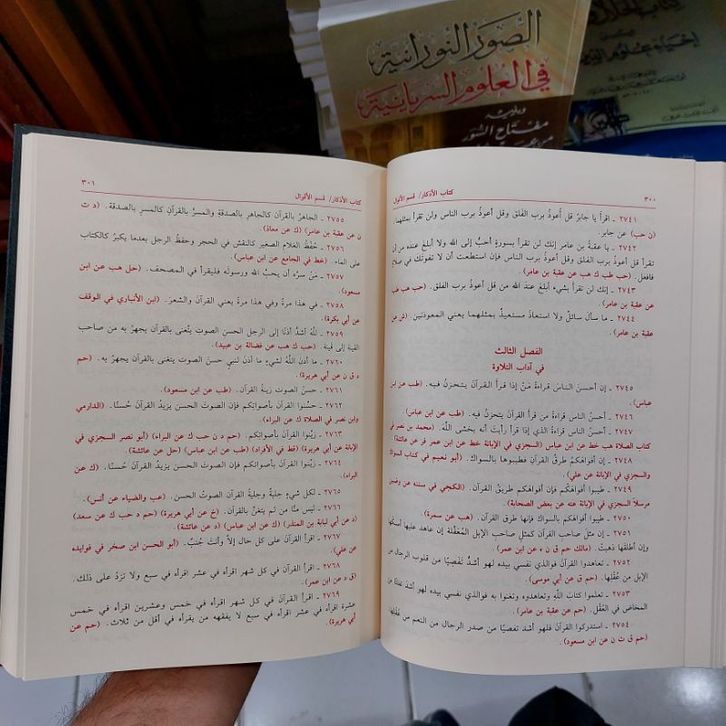 الصور النورانية
في العلوم السريانية
ويليه
مفتاح السور
٣٠٠
كتاب الأذكار/ قسم الأقوال
٢٧٤١ ـ اقرأ يا جابرُ قل أعوذ برب الفلق وقل أعوذ برب الناس ولن تقرأ بمثلهما.
(ن حب) عن جابر.
٢٧٤٢ ـ يا عقبةُ بن عامر إنك لن تقرأ بسورةٍ أحبَّ إلى الله ولا أبلغ عنده من أن
تقرأ قل أعوذ برب الفلق وقل أعوذ برب الناس فإن استطعت أن لا تفوتك في صلاةٍ
فافعل. (حب طب ك هب عن عقبة بن عامر).
٢٧٤٣ ـ إنك لن تقرأ بشيء أبلغ عند الله من قل أعوذ برب الفلق. (حب هب طب
عن عقبة بن عامر).
٢٧٤٤ ـ ما سأل سائلٌ ولا استعاذ مستعيذٌ بمثلهما يعني المعوذتين. (ش عن
عقبة بن عامر).
الفصل الثالث
في آداب التلاوة
٢٧٤٥ ـ إن أحسن الناس قراءة مَنْ إذا قرأ القرآن يتحزنُ فيه. (طب عن ابن
عباس).
٢٧٤٦ ـ أحسنُ الناس قراءة من قرأ القرآن يتحزنُ فيه. (طب عن ابن عباس).
٢٧٤٧ ـ أحسنُ الناس قراءة الذي إذا قرأ رأيت أنه يخشى اللَّهَ. (محمد بن نصر في
كتاب الصلاة هب خط عن ابن عباس) (السجزي في الإبانة خط عن ابن عمر فر عن عائشة)
٢٧٤٨ ـ إن أفواهكمْ طرقُ القرآن، فطيبوها بالسواك. (أبو نعيم في كتاب السواك
والسجزي في الإبانة عن علي).
٢٧٤٩ ـ طيبوا أفواهكم بالسواك فإن أفواهَكُم طريقُ القرآن. (الكجي في سننه عن وضين
مرسلاً السجزي في الإبانة عنه عن بعض الصحابة).
٢٧٥٠ ـ طيبوا أفواهكم بالسواك فإنها طرق القرآن. (هب عن سمرة).
٢٧٥١ ـ إن مثل صاحب القرآن كمثل صاحب الإبل المُعقَّلة إن عاهد عليها أمسكها
وإن أطلقها ذهبتْ. (مالك حم ق ن ه عن ابن عمر).
٢٧٥٢ ـ تعاهدوا القرآن فوالذي نفسي بيده لهو أشدُّ تفصِّيًا من قلوب الرجال من
الإبل من عُقُلها. (حم ق عن أبي موسى).
٢٧٥٣ ـ تعلموا كتابَ الله وتعاهدوه وتغنوا به فوالذي نفسي بيده لهو أشد تفلتًا من
المخاض في العُقُل. (حم عن عقبة بن عامر).
٢٧٥٤ ـ استذكروا القرآن فلهو أشد تفصيًا من صدر الرجال من النعم من عُقُلها.
(حم ق ت ن عن ابن مسعود).
كتاب الأذكار/ قسم الأقوال
٣٠١
٢٧٥٥ ـ الجاهرُ بالقرآن كالجاهر بالصدقةِ والمسرُّ بالقرآن كالمسر بالصدقة. (د ت
ن عن عقبة بن عامر) (ك عن معاذ).
٢٧٥٦ ـ حُفْظُ الغلام الصغير كالنقش في الحجر وحفظُ الرجل بعدما يكبرُ كالكتاب
على الماء. (خط في الجامع عن ابن عباس).
٢٧٥٧ ـ مَنْ سرَّه أن يحبَّ الله ورسولَه فليقرأ في المصحف. (حل هب عن ابن
مسعود)
٢٧٥٨ ـ في هذا مرةً وفي هذا مرةً يعني القرآن والشعرَ. (ابن الأنباري في الوقف
عن أبي بكرة).
٢٧٥٩ ـ للَّهُ أشدُّ أذنًا إلى الرجل الحسن الصوت يتُغنى بالقرآن يجهرُ به من صاحب
القينة إلى قينة. (حب ك هب عن فضالة بن عبيد).
٢٧٦٠ ـ ما أذن اللَّهُ لشيءٍ ما أذن لنبيٍ حسن الصوت يتغنى بالقرآن يجهرُ به. (حم
د ق ن عن أبي هريرة).
٢٧٦١ ـ حسنُ الصوت زينةُ القرآن. (طب عن ابن مسعود).
٢٧٦٢ ـ حسِّنوا القرآن بأصواتكم فإن الصوت الحسن يزيدُ القرآن حُسنًا. (الدارمي
وابن نصر في الصلاة ك عن البراء).
٢٧٦٣ ـ زيِّنوا القرآن بأصواتكم. (حم د ن حب ك عن البراء) (أبو نصر السجزي في
الإبانة عن أبي هريرة) (قط في الأفراد) (طب عن ابن عباس) (حل عن عائشة).
٢٧٦٤ ـ زيِّنوا القرآن بأصواتكم فإن الصوت الحسن يزيدُ القرآن حُسنًا. (ك عن
البراء).
٢٧٦٥ ـ لكل شيءٍ حِليةٌ وحليةُ القرآن الصوتُ الحسن. (عب والضياء عن أنس).
٢٧٦٦ ـ ليس منَّا من لم يتغنَّ بالقرآن. (خ عن أبي هريرة) (حم د حب ك عن سعد)
(د عن أبي لبابة بن المنذر) (ك عن ابن عباس) (د عن عائشة).
٢٧٦٧ ـ اقرأ القرآن على كل حال إلاَّ وأنت جُنبٌ. (أبو الحسن ابن صخر في فوائده
عن علي).
٢٧٦٨ ـ اقرأ القرآن في كل شهر اقرأه في عشر اقرأه في سبع ولا تزدْ على ذلك.
(ق د عن ابن عمر).
٢٧٦٩ ـ اقرأ القرآن في كل شهر اقرأه في خمس وعشرين اقرأه في خمس
عشرة اقرأه في عشر اقرأه في سبع لا يفقهه من يقرأه في أقل من ثلاث. (حم عن
أبي هريرة).